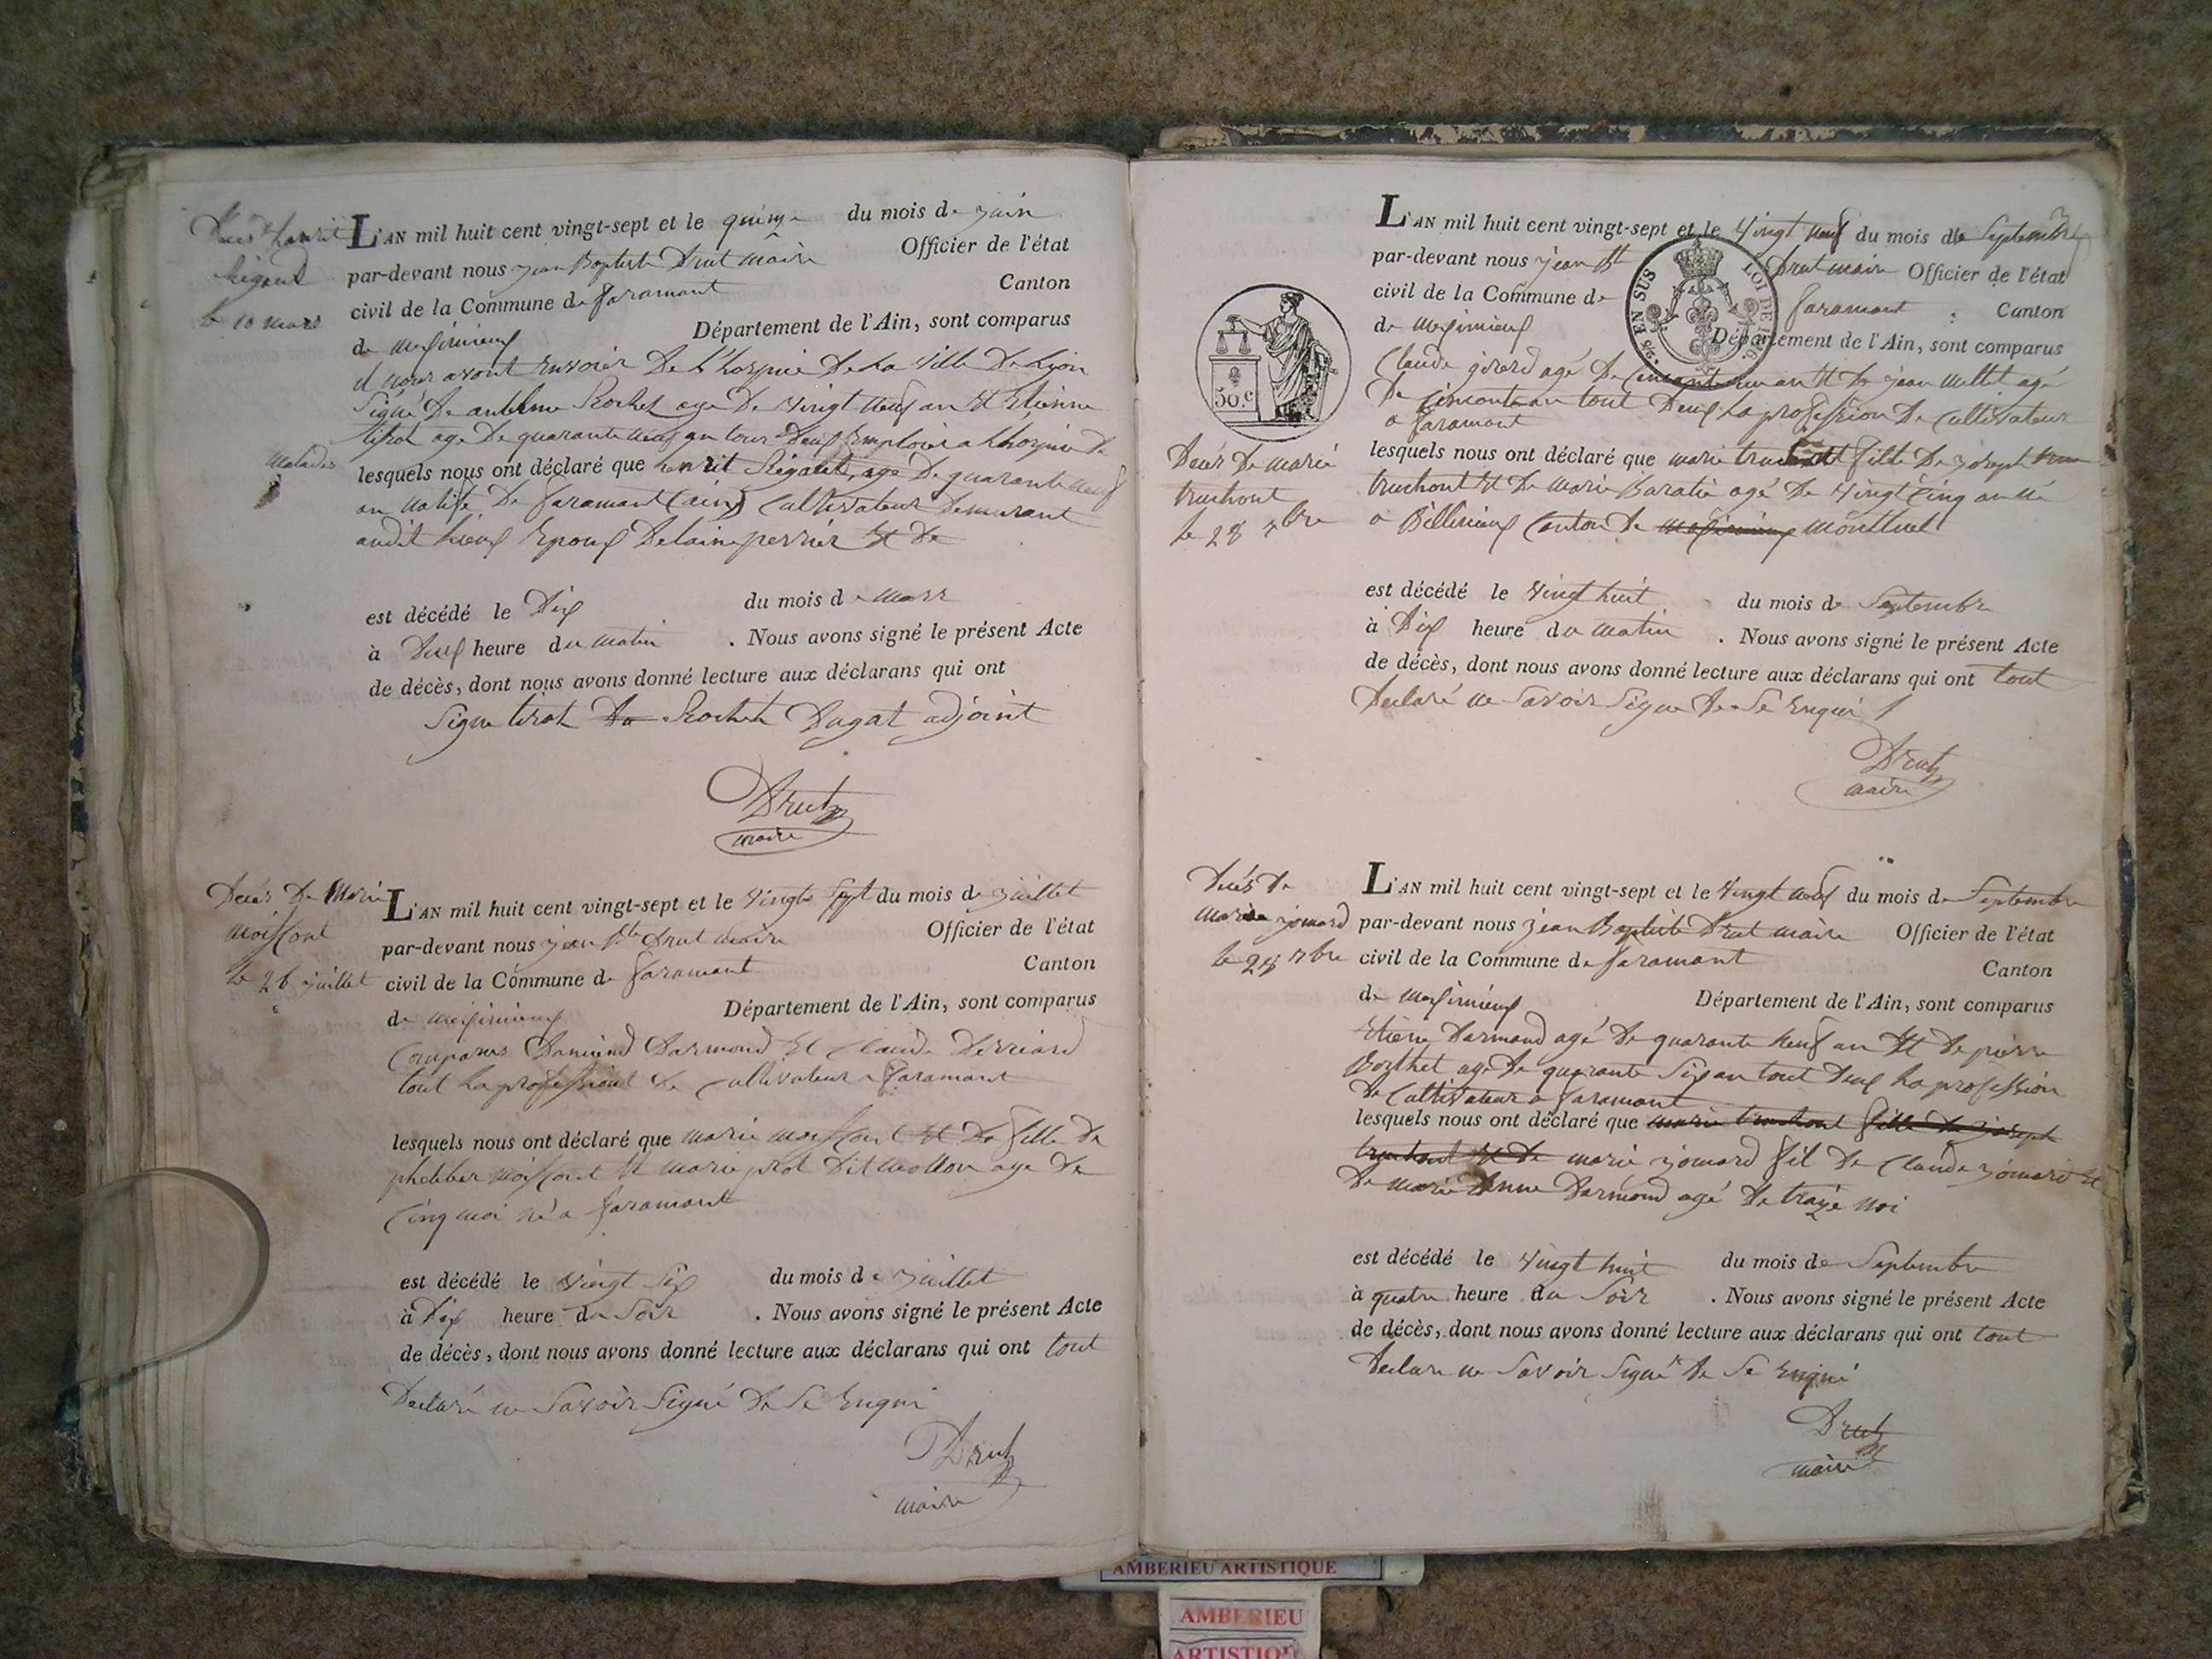 Décès d'henrit
Rigaud
le 10 mars
L'AN mil huit cent vingt-sept et le quinze du mois de juin
par-devant nous jean Baptiste Drut maire Officier de l'état
civil de la Commune de faramant Canton
de meximieux Département de l'Ain, sont comparus
il nous avont envoier De l'hospice De La ville De Lyon
Signé De antelme Rochet age De vingt neuf an Et Etienne
tirot age De quarante neuf an tour Deux Emploier a l'hospice De
malades
lesquels nous ont déclaré que henrit Rigaud, agé De quarante neuf
an natife De faramant (ain) Cultivateur Demurant
audit lieux Epoux Delaine perrier Et De
est décédé le Dix du mois de mars
à Deux heure du matin . Nous avons signé le présent Acte
de décès, dont nous avons donné lecture aux déclarans qui ont
Signe tirot De Rochet Dagat adjoint
Drut
maire
Décès De Marie
moissont
le 26 juillet
L'AN mil huit cent vingt-sept et le vingt Sept du mois de juillet
par-devant nous jean Bte Drut maire Officier de l'état
civil de la Commune de faramant Canton
de meximieux Département de l'Ain, sont comparus
Comparus Darmond Et Claude
tout la professiont de cultivateur a faramant
lesquels nous ont déclaré que marie moissont Et De fille De
moissont Et marie prot Dit mollon age De
Cinq moi né a faramant
est décédé le vingt Six du mois de juillet
à Dix heure du Soir . Nous avons signé le présent Acte
de décès, dont nous avons donné lecture aux déclarans qui ont tout
Declaré ne Savoir Signé De Se Enqui
Drut
maire
L'AN mil huit cent vingt-sept et le vingt neuf du mois de Septembre
par-devant nous jean Bt Drut maire Officier de l'état
civil de la Commune de faramant Canton
de meximieux Département de l'Ain, sont comparus
EN SUS
LOI DE 1816
50.c
Claude girerd agé De Cincante un an Et De jean millet agé
De Cincontean tout Deux La profession De Cultivateur
a faramant
Décès De marie
truchont
le 28 7bre
lesquels nous ont déclaré que marie truchont fille De joseph
truchont Et De marie Baratie agé De vingt Cinq an né
a Bellinieux Canton De meximieux montluel
est décédé le vingt huit du mois de Septembre
à Dix heure du matin . Nous avons signé le présent Acte
de décès, dont nous avons donné lecture aux déclarans qui ont tout
Declaré ne Savoir Signe De Se Enqui
Drut
maire
Décès De
marie jomard
le 28 7bre
L'AN mil huit cent vingt-sept et le vingt neuf du mois de Septembre
par-devant nous jean Baptiste Drut maire Officier de l'état
civil de la Commune de faramant Canton
de meximieux Département de l'Ain, sont comparus
Etiene Darmond agé De quarante neuf an Et De pierre
agé De quarante Six an tout Deux La profession
De Cultivateur a faramant
lesquels nous ont déclaré que marie truchont fille De joseph
truchont Et De marie jomard fil De Claude jomard Et
De marie Anne Darmond agé De traize moi
est décédé le vingt huit du mois de Septembre
à quatre heure du Soir . Nous avons signé le présent Acte
de décès, dont nous avons donné lecture aux déclarans qui ont tout
Declare ne Savoir Signé De Se Enqui
Drut
maire
AMBERIEU ARTISTIQUE
AMBERIEU
ARTISTIQUE